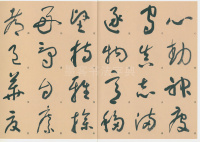 心動神疲
守真志滿
逐物意移
堅持雅操
好爵自縻
都邑華夏